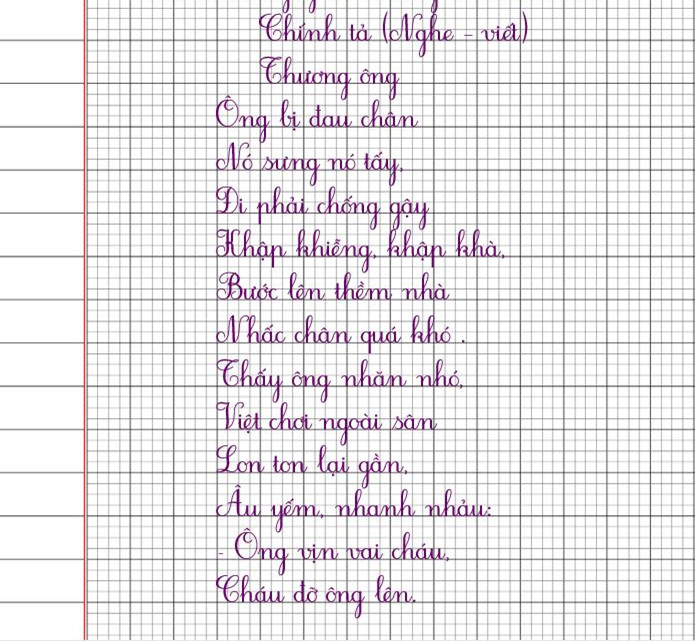 Chính tả (Nghe - viết)
Thương ông
Ông bị đau chân
Nó sưng nó tấy,
Đi phải chống gậy
Khập khiễng, khập khà,
Bước lên thềm nhà
Nhấc chân quá khó .
Thấy ông nhăn nhó,
Việt chơi ngoài sân
Lon ton lại gần,
Âu yếm, nhanh nhảu:
- Ông vịn vai cháu,
Cháu đỡ ông lên.